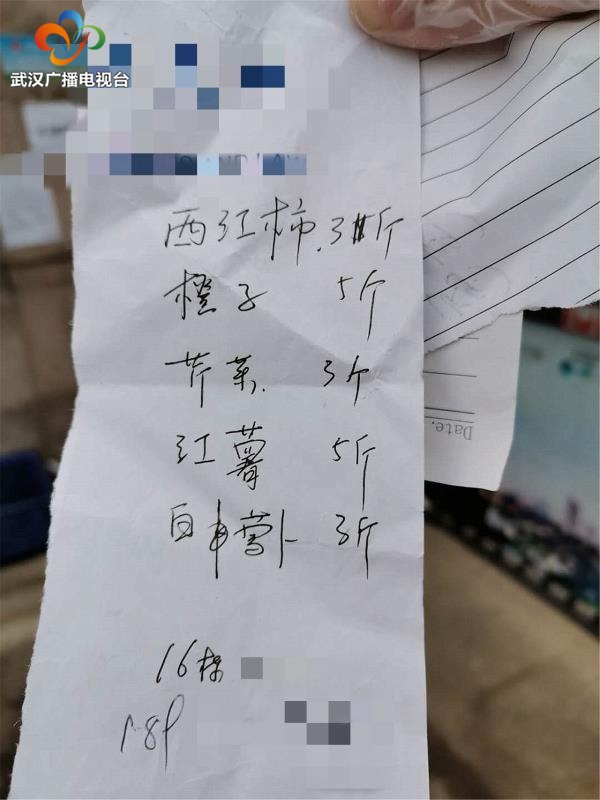 武汉广播电视台
西江柿 3斤
橙子 5斤
芹菜 3斤
红薯 5斤
白萝卜 3斤
16栋
Date.